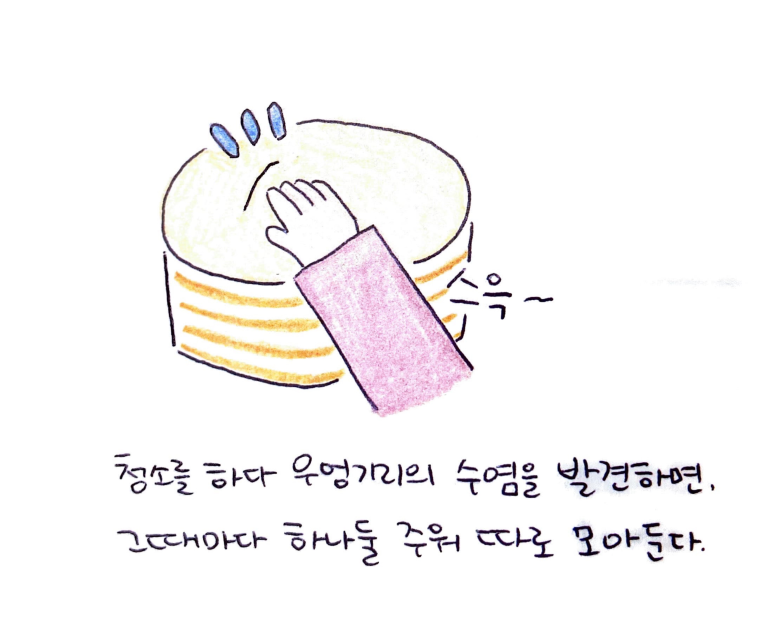 슥~
청소를 하다 우엉기리의 수염을 발견하면,
그때마다 하나둘 주워 따로 모아둔다.